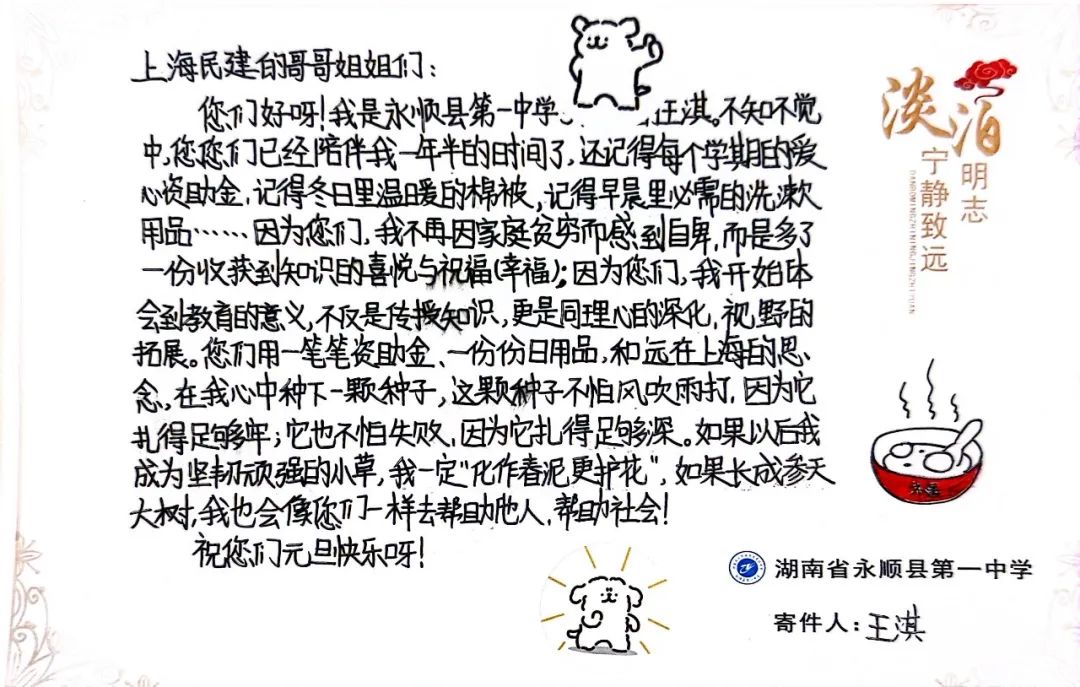 上海民建的哥哥姐姐们：
您们好呀！我是永顺县第一中学 王淇。不知不觉
中，您您们已经陪伴我一年半的时间了，还记得每个学期的爱
心资助金，记得冬日里温暖的棉被，记得早晨里必需的洗漱
用品……因为您们，我不再因家庭贫穷而感到自卑，而是多了
一份收获到知识的喜悦与祝福(幸福)；因为您们，我开始体
会到教育的意义，不仅是传授知识，更是同理心的深化，视野的
拓展。您们用一笔笔资助金、一份份日用品，和远在上海的思
念，在我心中种下一颗种子，这颗种子不怕风吹雨打，因为它
扎得足够牢；它也不怕失败，因为它扎得足够深。如果以后我
成为坚韧顽强的小草，我一定“化作春泥更护花”，如果长成参天
大树，我也会像您们一样去帮助他人，帮助社会！
祝您们元旦快乐呀！
淡泊
明志
宁静致远
DANBOMINGZHININGJINGZHIYUAN
湖南省永顺县第一中学
寄件人：王淇